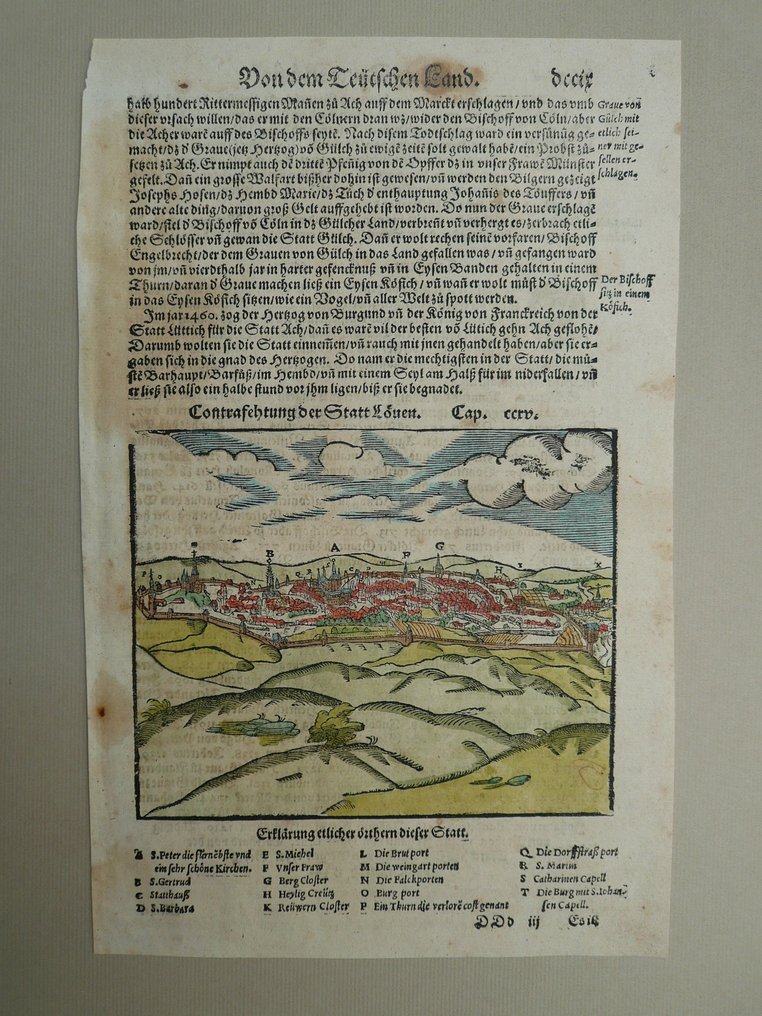 Von dem Teütschen Land. dccix
halb hundert Rittermessigen Mañen zů Ach auff dem Marckt erschlagen / vnd das vmb
dieser vrsach willen / das er mit den Cölnern dran wz / wider den Bischoff von Cöln / aber
die Acher warē auff des Bischoffs seytē. Nach disem Todtschlag ward ein versünūg ge-
macht / dz d Graue (jetz Hertzog) vō Gülch zů ewigē zeitē solt gewalt habē / ein Probst zů
setzen zů Ach. Er nimpt auch dē drittē Pfenig von dē Opffer dz in vnser Frawē Münster
gefelt. Dañ ein grosse Walfart bißher dohin ist gewesen / vñ werden den Bilgern gezeigt
Josephs Hosen / dz Hembd Marie / dz Tůch d enthauptung Johañis des Töuffers / vñ
andere alte ding / daruon groß Gelt auffgehebt ist worden. Do nun der Graue erschlagē
ward / fiel d Bischoff vō Cöln in dz Gülcher Land / verbreñt vñ verhergt es / zerbrach etli-
che Schlösser vñ gewan die Statt Gülch. Dañ er wolt rechen seinē vorfaren / Bischoff
Engelbrecht / der dem Grauen von Gülch in das Land gefallen was / vñ gefangen ward
von jm / vñ vierdthalb jar in harter gefencknuß vñ in Eysen Banden gehalten in einem
Thurn / daran d Graue machen ließ ein Eysen Kösich / vñ wañ er wolt můst d Bischoff
in das Eysen Kösich sitzen / wie ein Vogel / vñ aller Welt zů spott werden.
Im jar 1460. zog der Hertzog von Burgund vñ der König von Franckreich von der
Statt Lüttich für die Statt Ach / dañ es warē vil der besten vō Lüttich gehn Ach geflohē /
Darumb wolten sie die Statt einnem̃en / vñ rauch mit jnen gehandelt haben / aber sie er-
gaben sich in die gnad des Hertzogen. Do nam er die mechtigsten in der Statt / die mů-
stē Barhaupt / Barfůß / im Hembd / vñ mit einem Seyl am Halß für im niderfallen / vñ
er ließ sie also ein halbe stund vor jhm ligen / biß er sie begnadet.
Graue von
Gülch mit
etlich sei-
ner mit ge-
sellen er-
schlagen.
Der Bischoff
sitz in einem
Kösich.
Contrafehtung der Statt Löuen. Cap. ccxv.
B A F G H I K
Erklärung etlicher örthern dieser Statt.
A S. Peter die fürnēbste vnd
ein sehr schöne Kirchen.
B S. Gertrud
C Statthauß
D S. Barbara
E S. Michel
F Vnser Fraw
G Berg Closter
H Heylig Creütz
K Reüwern Closter
L Die Brut port
M Die weingart porten
N Die Falckporten
O Burg port
P Ein Thurn die verlorē cost genant
Q Die Dorffstraß port
R S. Martin
S Catharinen Capell
T Die Burg mit S. Johañ
sen Capell.
DDd iij Es ist